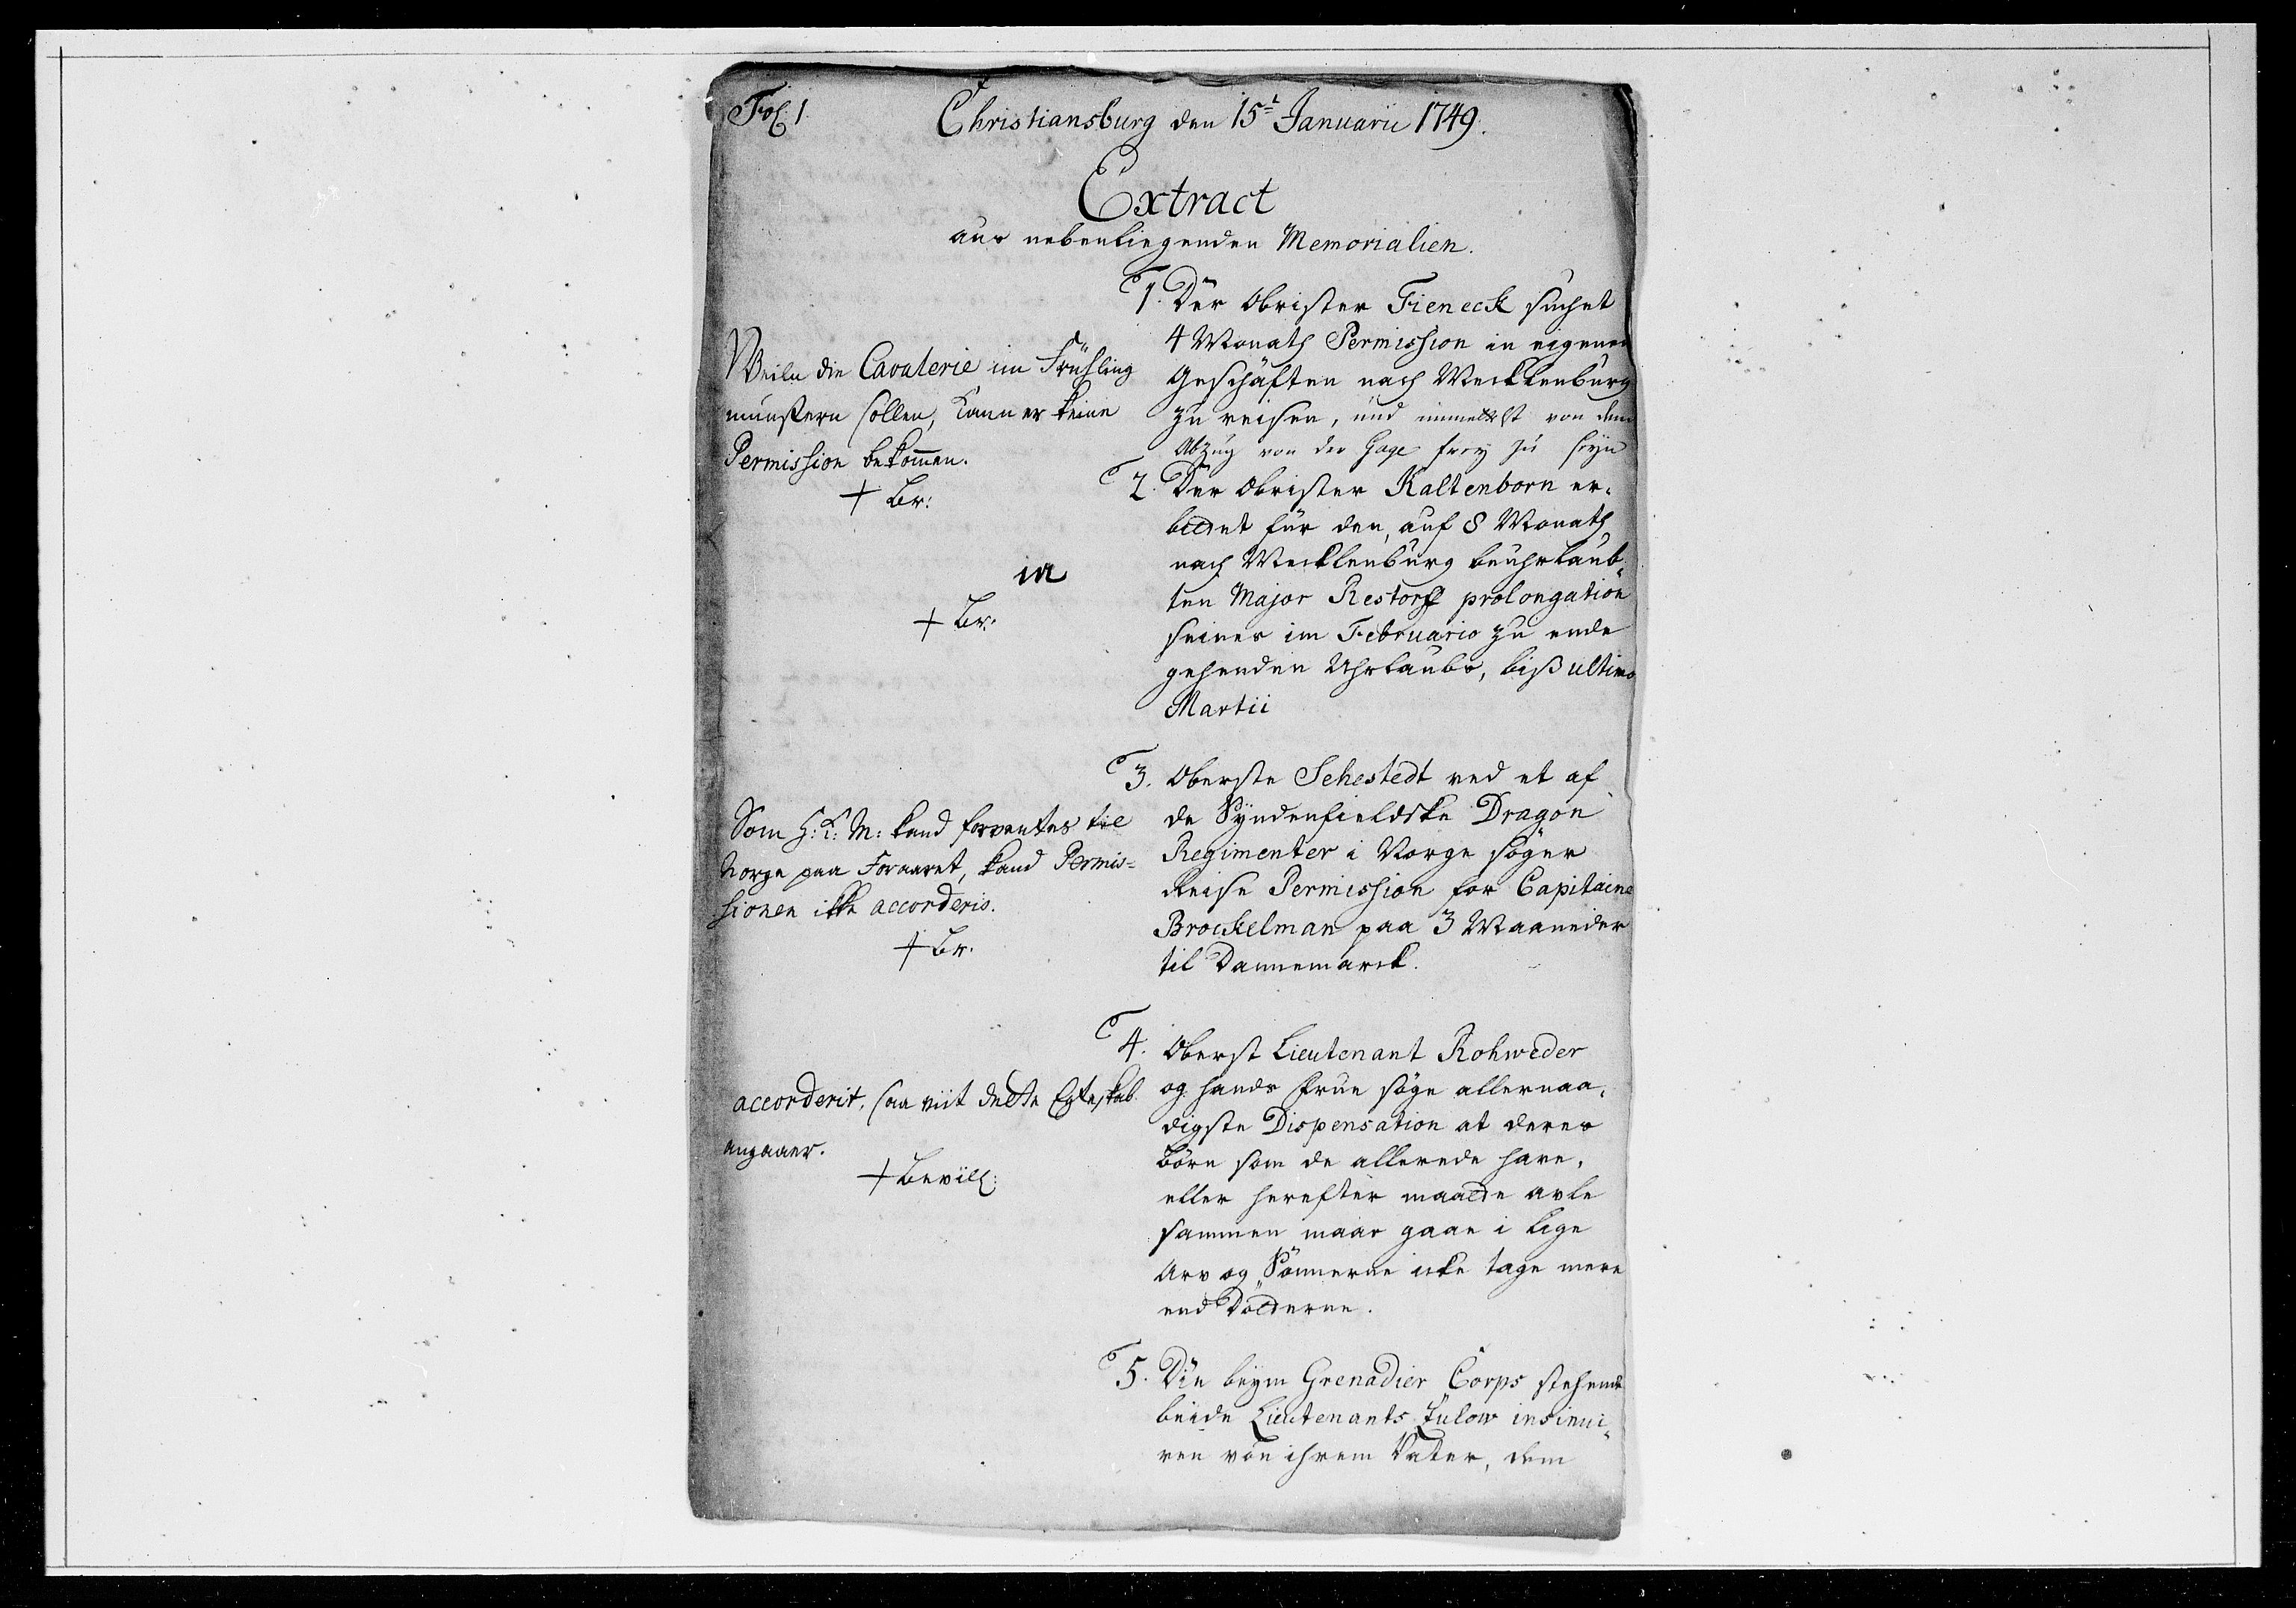 Fol: 1.
Christiansburg den 15t Januarii 1749.
Extract
aus nebenliegenden Memorialien.
1. Der Obrister Fieneck suchet
4 Monath Permission in eigenen
Geschäfften nach Mecklenburg
zu reisen, und immittelst von dem
Abzug von der Gage frey zu seyn
Weiln die Cavalerie im Frühling
munstern sollen, kann er keine
Permission bekommen.
+ Br:
2. Der Obrister Kaltenborn er-
bittet für den, auf 8 Monath
nach Mecklenburg beuhrlaub-
ten Major Restorff prolongation
seines im Februario zu ende
gehenden Uhrlaubs, biß ultimo
Martii
ia
+ Br:
3. Oberste Sehestedt ved et af
de Syndenfieldske Dragon
Regimenter i Norge søger
Reise Permission for Capitaine
Brockelman paa 3 Maaneder
til Dannemarck.
Som H: K: M: kand forventes til
Norge paa Foraaret, kand Permis-
sionen ikke accorderis.
+ Br.
4. Oberst Lieutenant Rohweder
og hands Frue søge allernaa-
digste Dispensation at deres
Børn som de allerede have,
eller herefter maatte avle
sammen maae gaae i lige
Arv og Sønnerne icke tage mere
end Døttrene.
accorderit, saa viit dette Egteskab
angaaer.
+ Bevill:
5. Die beym Grenadier Corps stehende
beide Lieutenants Zulow insinui-
ren von ihrem Vater, dem